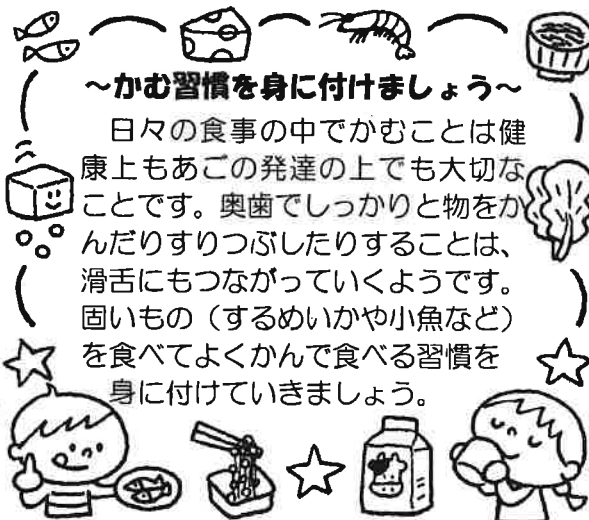 ～かむ習慣を身に付けましょう～
日々の食事の中でかむことは健
康上もあごの発達の上でも大切な
ことです。奥歯でしっかりと物をか
んだりすりつぶしたりすることは、
滑舌にもつながっていくようです。
固いもの（するめいかや小魚など）
を食べてよくかんで食べる習慣を
身に付けていきましょう。